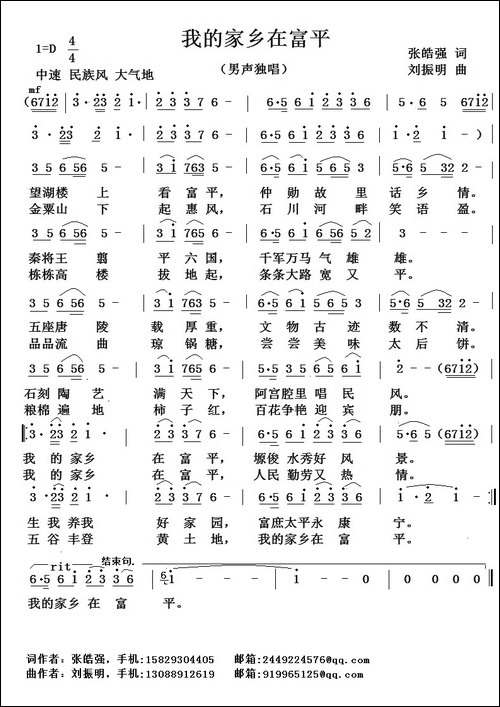 我的家乡在富平
1=D 4/4
中速 民族风 大气地
（男声独唱）
张皓强 词
刘振明 曲
mf
望湖楼 上 看 富平， 仲 勋 故 里 话 乡 情。
金粟山 下 起 惠风， 石 川 河 畔 笑 语 盈。
秦将王 翦 平 六 国， 千军万马 气 雄 雄。
栋栋高 楼 拔 地 起， 条条大路 宽 又 平。
五座唐 陵 载 厚重， 文 物 古 迹 数 不 清。
品品流 曲 琼 锅糖， 尝 尝 美 味 太 后 饼。
石刻 陶 艺 满 天下， 阿宫腔里 唱 民 风。
粮棉 遍 地 柿 子红， 百花争艳 迎 宾 朋。
我 的 家乡 在 富 平， 塬俊 水秀好 风 景。
我 的 家乡 在 富 平， 人民 勤劳又 热 情。
生 我 养我 好 家 园， 富庶太平永 康 宁。
五 谷 丰登 黄 土 地， 我的家乡在 富 平。
rit 结束句.
我的家乡 在 富 平。
词作者：张皓强，手机:15829304405 邮箱:2449224576@qq.com
曲作者：刘振明，手机:13088912619 邮箱:919965125@qq.com